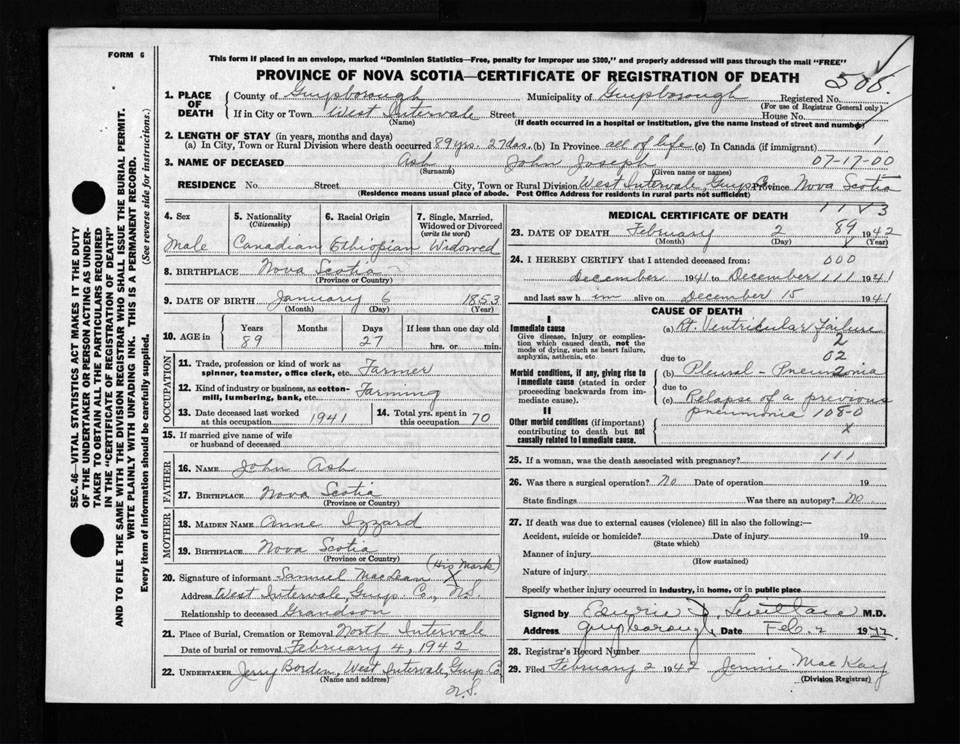 FORM 6
This form if placed in an envelope, marked "Dominion Statistics—Free, penalty for improper use $300," and properly addressed will pass through the mail "FREE"
PROVINCE OF NOVA SCOTIA—CERTIFICATE OF REGISTRATION OF DEATH
1. PLACE OF DEATH County of Guysborough Municipality of Guysborough Registered No.
(For use of Registrar General only)
If in City or Town West Intervale Street House No.
(Name) (If death occurred in a hospital or institution, give the name instead of street and number)
2. LENGTH OF STAY (in years, months and days)
(a) In City, Town or Rural Division where death occurred 89 yrs. 27 das. (b) In Province all of life (c) In Canada (if immigrant) 1
3. NAME OF DECEASED Ash John Joseph 07-17-00
(Surname) (Given name or names)
RESIDENCE No. Street City, Town or Rural Division West Intervale, Guys Co. Province Nova Scotia
(Residence means usual place of abode. Post Office Address for residents in rural parts not sufficient)
4. Sex 5. Nationality (Citizenship) 6. Racial Origin 7. Single, Married, Widowed or Divorced (write the word)
Male Canadian Ethiopian Widowed
8. BIRTHPLACE Nova Scotia
(Province or Country)
9. DATE OF BIRTH January 6 1853
(Month) (Day) (Year)
10. AGE in Years Months Days If less than one day old
89 27 hrs. or min.
OCCUPATION
11. Trade, profession or kind of work as spinner, teamster, office clerk, etc. Farmer
12. Kind of industry or business, as cotton-mill, lumbering, bank, etc. Farming
13. Date deceased last worked at this occupation 1941 14. Total yrs. spent in this occupation 70
15. If married give name of wife or husband of deceased
FATHER
16. NAME John Ash
17. BIRTHPLACE Nova Scotia
(Province or Country)
MOTHER
18. MAIDEN NAME Anne Izzard
19. BIRTHPLACE Nova Scotia
(Province or Country)
20. Signature of informant Samuel MacLean X (His Mark)
Address West Intervale, Guys. Co., N.S.
Relationship to deceased Grandson
21. Place of Burial, Cremation or Removal North Intervale
Date of burial or removal February 4, 1942
22. UNDERTAKER Jerry Borden, West Intervale, Guys Co.
(Name and address) N.S.
MEDICAL CERTIFICATE OF DEATH
23. DATE OF DEATH February 2 89 1942
(Month) (Day) (Year)
24. I HEREBY CERTIFY that I attended deceased from: 000
December 1941 to December 111 1941
and last saw him alive on December 15 1941
CAUSE OF DEATH
I
Immediate cause (a) Rt. Ventricular Failure
Give disease, injury or complication which caused death, not the mode of dying, such as heart failure, asphyxia, asthenia, etc.
2
02
due to
Morbid conditions, if any, giving rise to immediate cause (stated in order proceeding backwards from immediate cause). (b) Pleural-Pneumonia
due to
(c) Relapse of a previous
II pneumonia 108-0
Other morbid conditions (if important) contributing to death but not causally related to immediate cause. x
25. If a woman, was the death associated with pregnancy? 111
26. Was there a surgical operation? No Date of operation 19
State findings Was there an autopsy? No
27. If death was due to external causes (violence) fill in also the following:—
Accident, suicide or homicide? Date of injury 19
(State which)
Manner of injury
(How sustained)
Nature of injury
Specify whether injury occurred in industry, in home, or in public place
Signed by M.D.
Address Guysborough Date Feb. 2 1942
28. Registrar's Record Number
29. Filed February 2 1942 Jennie MacKay
(Division Registrar)
SEC. 46—VITAL STATISTICS ACT MAKES IT THE DUTY
OF THE UNDERTAKER OR PERSON ACTING AS UNDER-
TAKER TO OBTAIN ALL THE PARTICULARS REQUIRED
IN THE "CERTIFICATE OF REGISTRATION OF DEATH"
AND TO FILE THE SAME WITH THE DIVISION REGISTRAR WHO SHALL ISSUE THE BURIAL PERMIT.
WRITE PLAINLY WITH UNFADING INK. THIS IS A PERMANENT RECORD.
Every item of information should be carefully supplied. (See reverse side for instructions.)